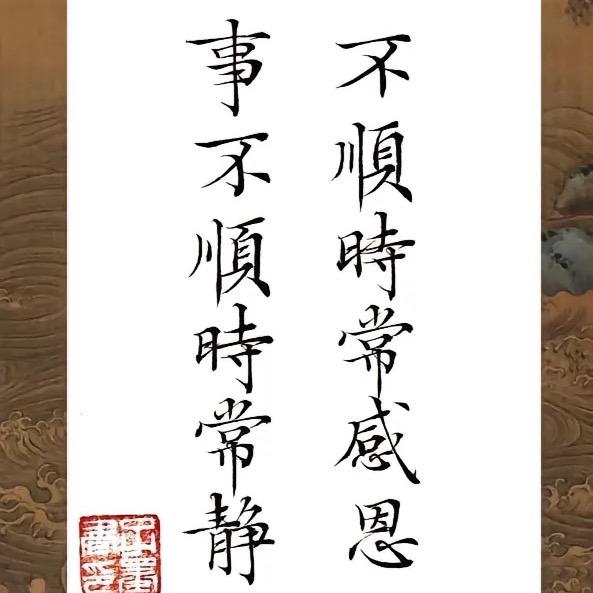 不順時常感恩
事不順時常静